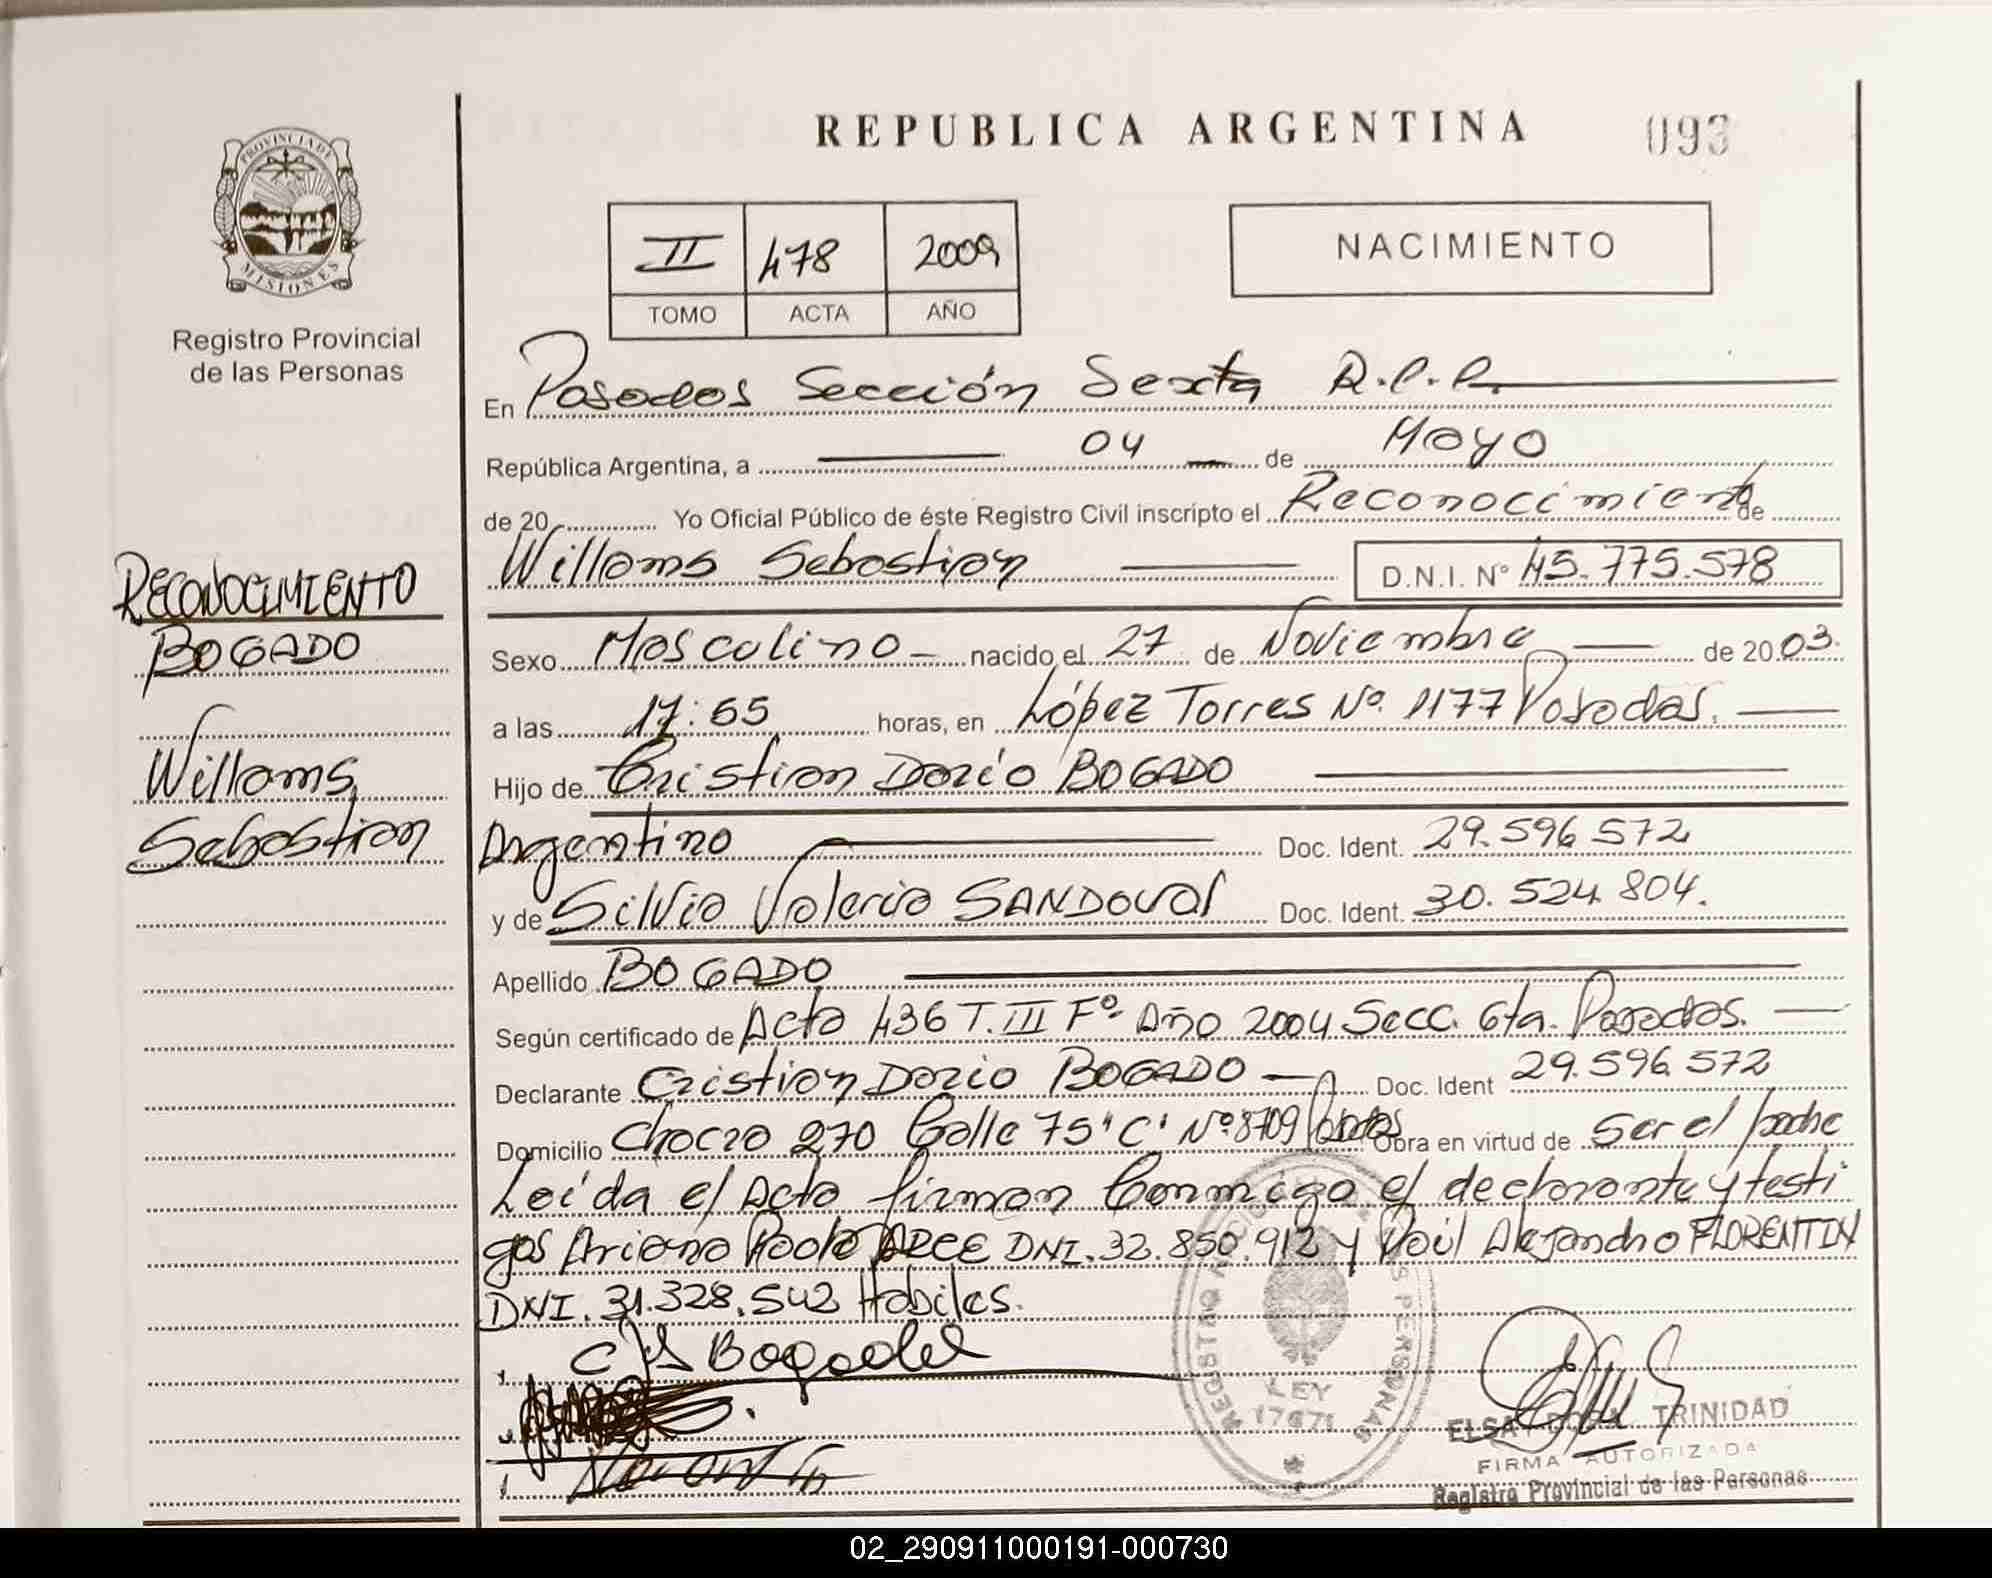 REPUBLICA ARGENTINA
093
PROVINCIA DE
MISIONES
Registro Provincial
de las Personas
II 478 2009
TOMO ACTA AÑO
NACIMIENTO
En Posadas Sección Sexta R.P.P.
República Argentina, a 04 de Mayo
de 20 Yo Oficial Público de éste Registro Civil inscripto el Reconocimiento de
Willams Sebastian D.N.I. Nº 45.775.578
RECONOCIMIENTO
BOGADO
Willams
Sebastian
Sexo Masculino nacido el 27 de Noviembre de 2003.
a las 17:55 horas, en López Torres Nº. 1177 Posadas.
Hijo de Cristian Dario BOGADO
Argentino Doc. Ident. 29.596 572
y de Silvia Valeria SANDOVAL Doc. Ident. 30.524 804.
Apellido BOGADO
Según certificado de Acta 436 T. III Fº Año 2004 Secc. 6ta. Posadas.
Declarante Cristian Dario BOGADO Doc. Ident 29.596 572
Domicilio Chacra 270 Calle 75 "C" Nº 8709 Posadas Obra en virtud de Ser el padre
Leída el Acta firman Conmigo el declarante y testi
gos Ariana Paola ARCE DNI. 32.850.912 y Alejandro FLORENTIN
DNI. 31.328.542 Habiles.
Bogado
REGISTRO NACIONAL DE LAS PERSONAS
LEY
17671
ELSA DORA TRINIDAD
FIRMA AUTORIZADA
Registro Provincial de las Personas
02_290911000191-000730